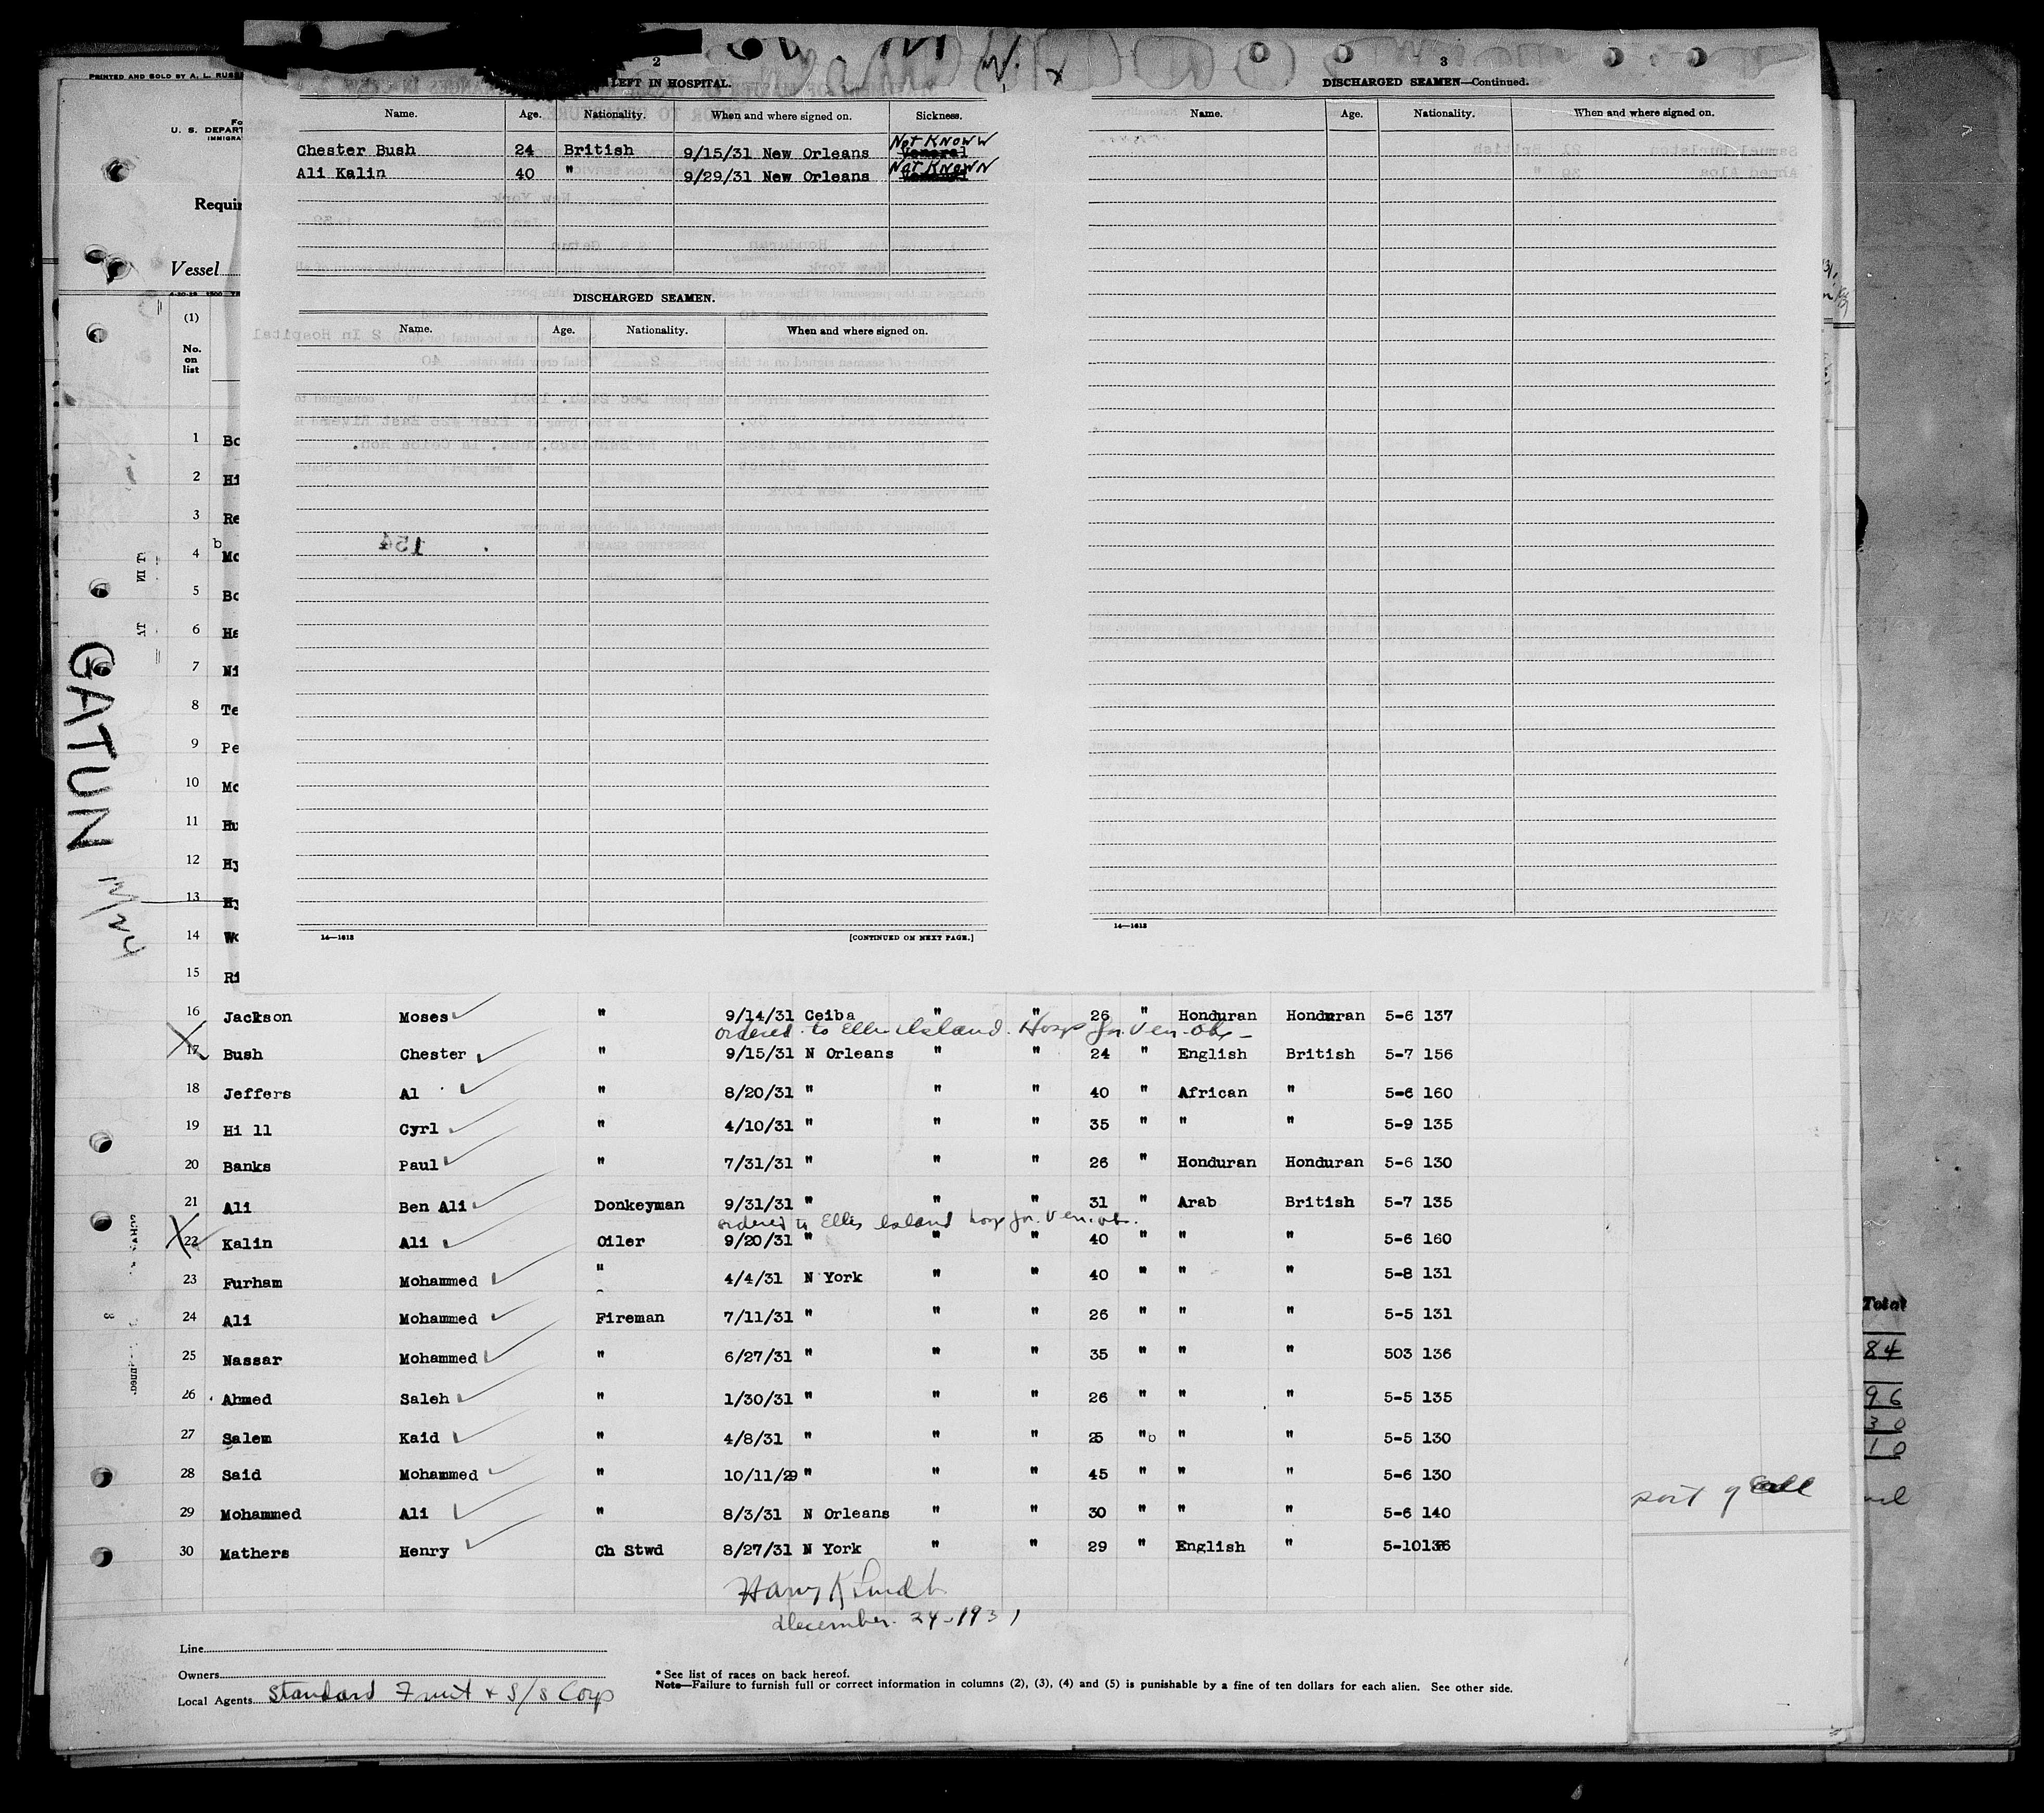 PRINTED AND SOLD BY A. L. RUSS
U. S. DEPART
IMMIGRA
Requir
Vessel
GATUN
12/24
2
LEFT IN HOSPITAL.
Name. Age. Nationality. When and where signed on. Sickness.
Not Known
Chester Bush 24 British 9/15/31 New Orleans Veneral
Not Known
Ali Kalin 40 " 9/29/31 New Orleans
DISCHARGED SEAMEN.
Name. Age. Nationality. When and where signed on.
154
14—1613 [CONTINUED ON NEXT PAGE.]
3
DISCHARGED SEAMEN—Continued.
Name. Age. Nationality. When and where signed on.
14—1613
(1)
No.
on
list
1 Bo
2 Hi
3 Re
b
4 Mc
5 Bo
6 He
7 Ni
8 Te
9 Pe
10 Mc
11 Hu
12 Hy
13 Hy
14 Wo
15 Ri
16 Jackson Moses " 9/14/31 Ceiba " " 26 " Honduran Honduran 5-6 137
ordered to Ellis Island Hosp for Ven. obs -
17 Bush Chester " 9/15/31 N Orleans " " 24 " English British 5-7 156
18 Jeffers Al " 8/20/31 " " " 40 " African " 5-6 160
19 Hi ll Cyrl " 4/10/31 " " " 35 " " " 5-9 135
20 Banks Paul " 7/31/31 " " " 26 " Honduran Honduran 5-6 130
21 Ali Ben Ali Donkeyman 9/31/31 " " " 31 " Arab British 5-7 135
ordered to Ellis Island hosp for Ven. obs.
22 Kalin Ali Oiler 9/20/31 " " " 40 " " " 5-6 160
23 Furham Mohammed " 4/4/31 N York " " 40 " " " 5-8 131
24 Ali Mohammed Fireman 7/11/31 " " " 26 " " " 5-5 131
25 Nassar Mohammed " 6/27/31 " " " 35 " " " 503 136
26 Ahmed Saleh " 1/30/31 " " " 26 " " " 5-5 135
27 Salem Kaid " 4/8/31 " " " 25 "b " " 5-5 130
28 Said Mohammed " 10/11/29 " " " 45 " " " 5-6 130
29 Mohammed Ali " 8/3/31 N Orleans " " 30 " " " 5-6 140
30 Mathers Henry Ch Stwd 8/27/31 N York " " 29 " English " 5-10 136
December 24-1931
Line
Owners
Local Agents Standard Fruit & S/S Corp
* See list of races on back hereof.
Note—Failure to furnish full or correct information in columns (2), (3), (4) and (5) is punishable by a fine of ten dollars for each alien. See other side.
Total
84
96
30
10
port of call